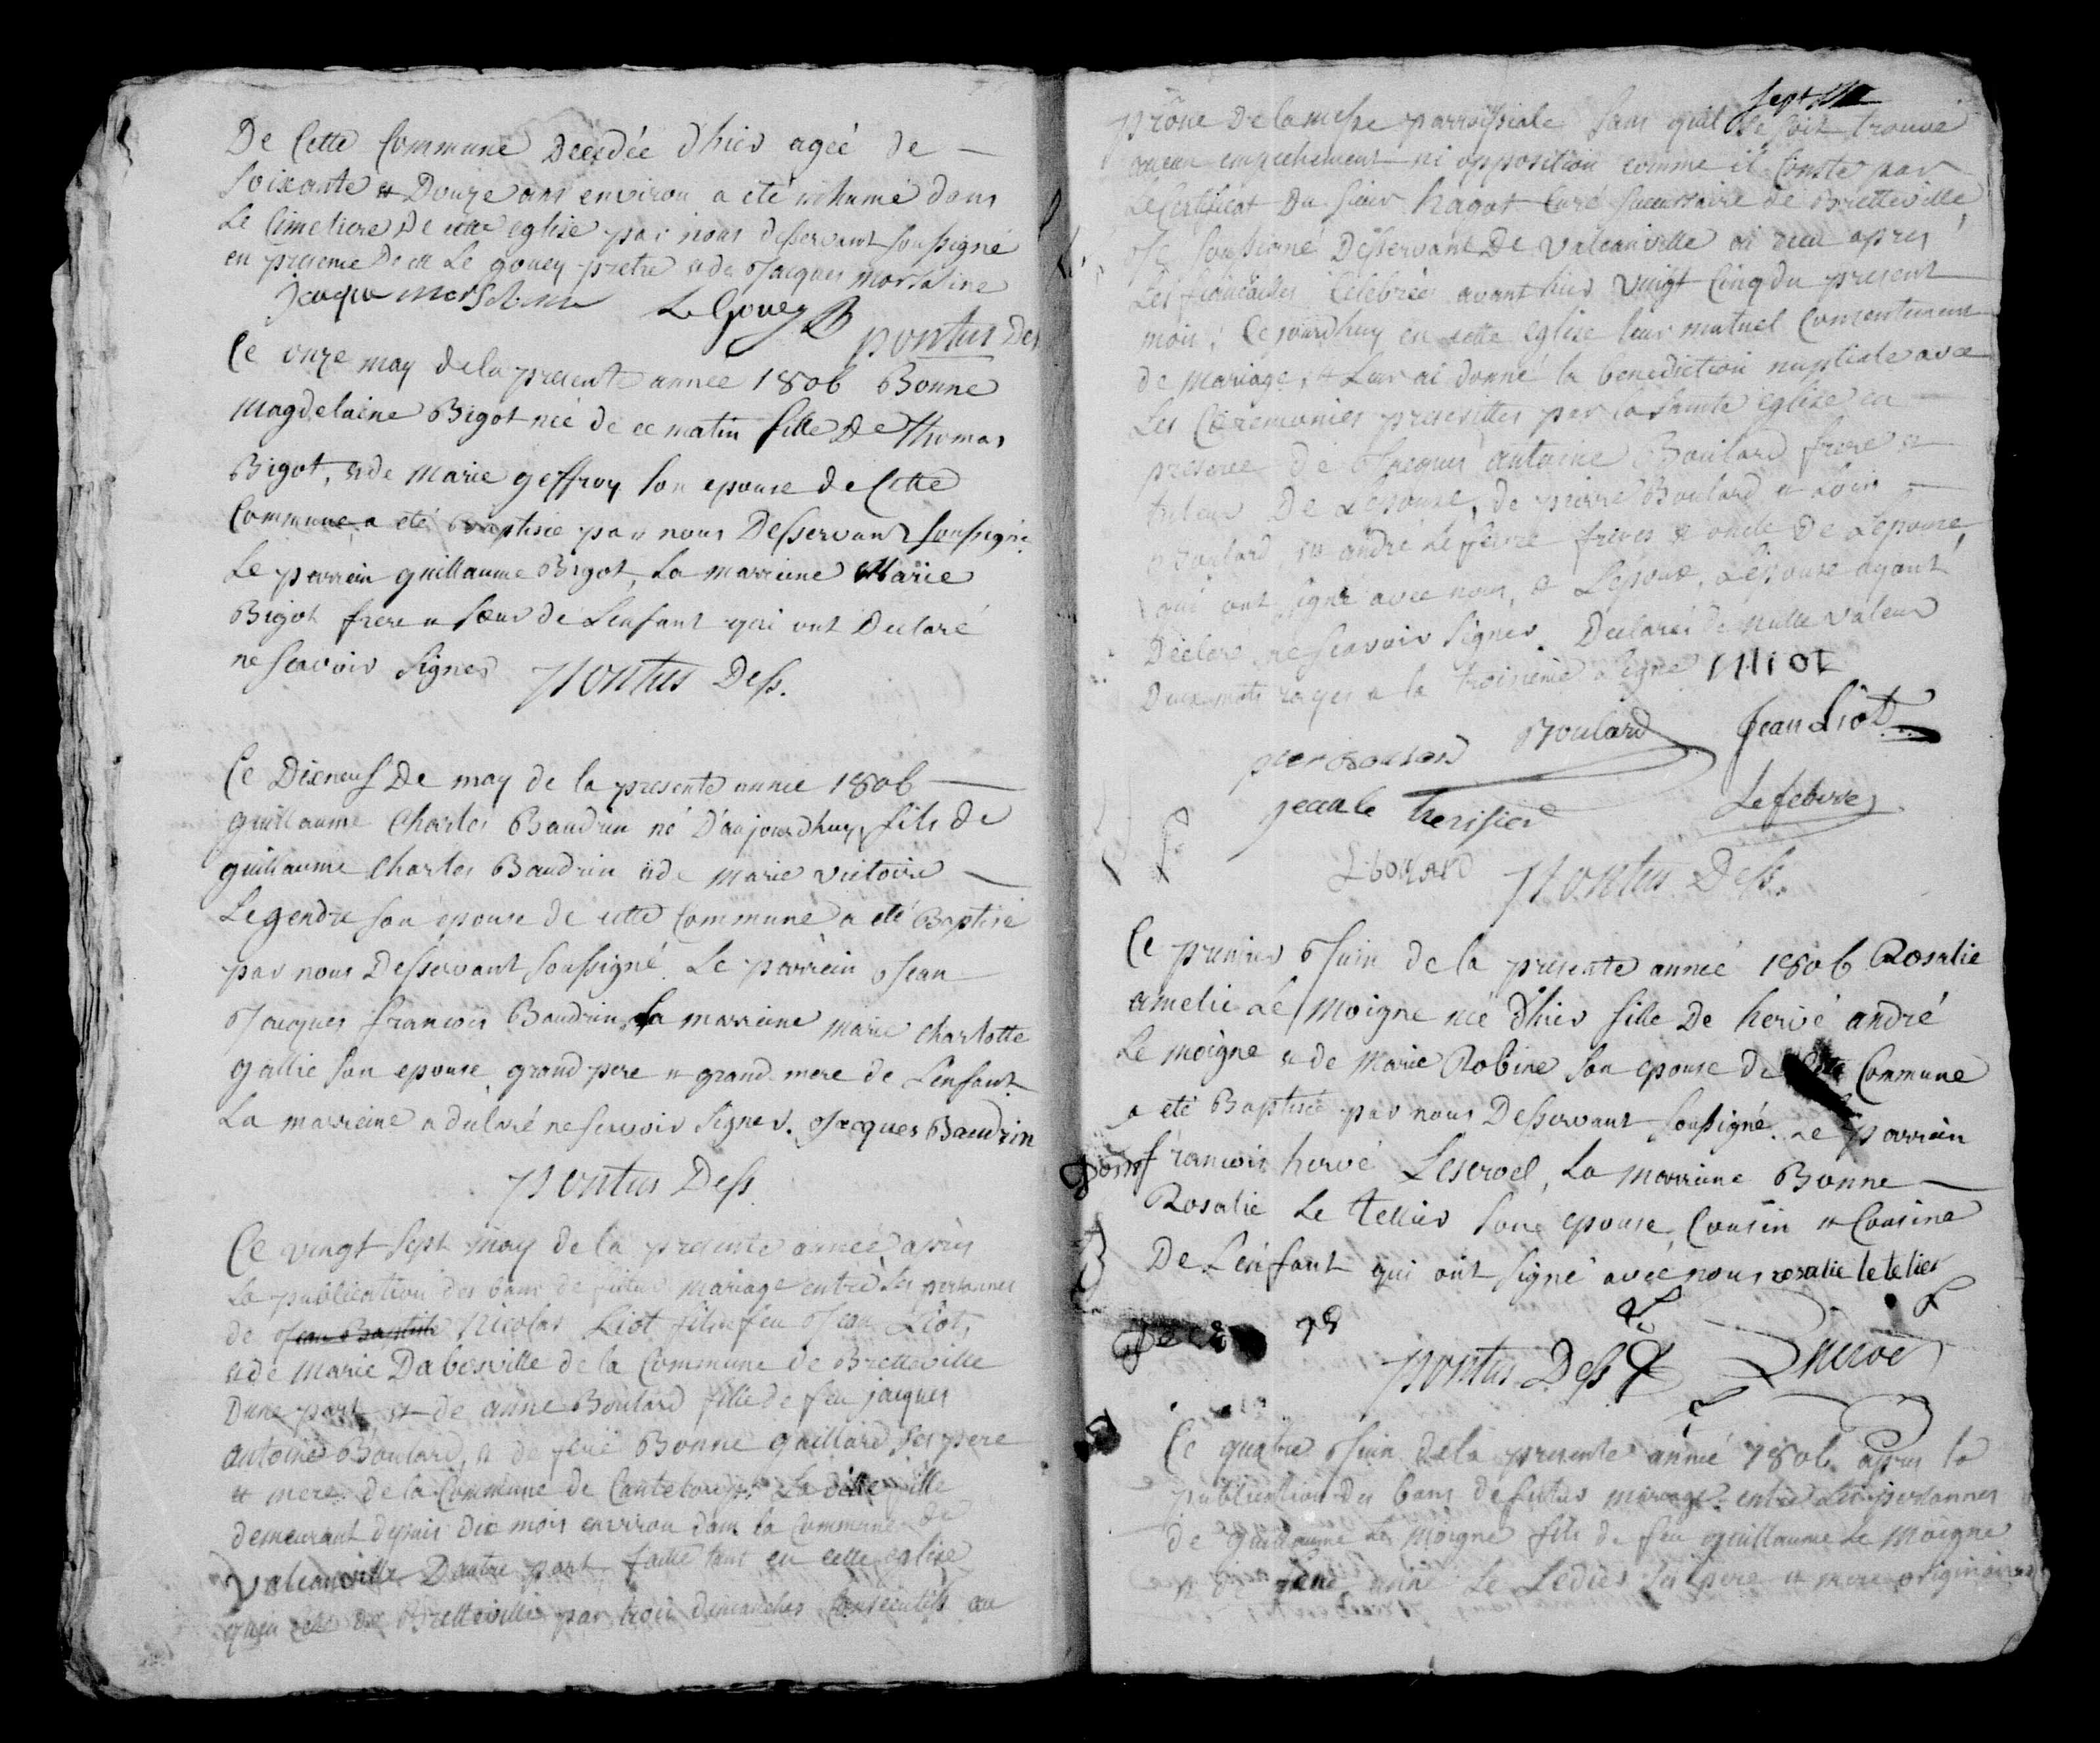 De Cette Commune Decedée d'hier ageé de —
Soixante et Douze ans environ a eté inhumé dans
Le Cimetiere De cette eglise par nous desservant soussigné
en presence De Le gouey pretre et de Jacques Morsaline
Le Gouey
pontus Des
Ce onze may de la presente année 1806 Bonne
Magdelaine Bigot neé de ce matin fille De Thomas
Bigot, et de Marie geffroy son epouse de Cette
Commune a eté Baptisée par nous Desservant soussigné
Le parrein guillaume Bigot, La marreine Marie
Bigot frere et sœur de L'enfant qui ont Declaré
ne scavoir signer Pontus Dess.
Ce Dixneuf De may de la presente année 1806 —
guillaume Charles Baudrin né D'aujourdhuy, fils de
guillaume Charles Baudrin et de Marie victoire —
Legendre son epouse de cette Commune a eté Baptisé
par nous Desservant soussigné. Le parrein Jean
Jacques francois Baudrin, La marreine marie charlotte
gallie son epouse, grand pere et grand mere de L'enfant
La marreine a declaré ne scavoir signer. Jacques Baudrin
Pontus Dess
Ce vingt sept may de la presente année après
La publication des bans de futur mariage entre Les personnes
de Jean Baptiste Nicolas Liot fils feu Jean Liot,
et de Marie Dabosville de la Commune de Bretteville
Dune part et de anne Boulard fille de feu jacques
antoine Boulard, et de Bonne gaillard ses pere
et mere de la Commune de La ditte fille
demeurant depuis dix mois environ dans la Commune de
Valcanville D'autre part faitte tant en cette eglise
qu'en celle de Bretteville par trois dimanches Consecutifs au
prône De la messe parroissiale sans quil se soit trouvé
aucun empechement ni opposition comme il Conste par
Le Certificat Du sieur hagot Curé de Bretteville,
Je soussigné Desservant De Valcanville ai recu après
Les fiancailles Celebrées avant hier vingt Cinq du present
mois, Ce jourdhuy en cette eglise leur mutuel Consentement
de mariage, et Leur ai donné la benediction nuptiale avec
Les Cérémonies prescrittes par la sainte eglise en —
presence de Jacques antoine Boulard frere et
tuteur De L'epouse, de pierre Boulard et Loüis —
Boulard, et andré Le febvre freres et oncle De L'epouse,
qui ont signé avec nous, et L'epoux, L'epouse ayant
Declaré ne scavoir signer. Declarés de Nulle valeur
Deux mots rayés a la troisieme Ligne NLiot
Boulard Jean Liot
jean le therisier Lefebvre
L boulard Pontus Dess.
Ce premier Juin de la presente année 1806 Rosalie
amelie Le Moigne neé d'hier fille De hervé andré
Le moigne et de Marie Robine son epouse de Commune
a eté Baptisée par nous Desservant soussigné. Le parrein
francois hervé Lescroel, La marreine Bonne —
Rosalie Le tellier son epouse, Cousin et Cousine
De L'enfant qui ont signé avec nous rosalie le telier
pontus Dess
Ce quatre Juin de la presente année 1806 après la
publication des bans de futur mariage entre Les personnes
de guillaume Le Moigne fils de feu guillaume Le Moigne
anne Le Ledier ses pere et mere originaires